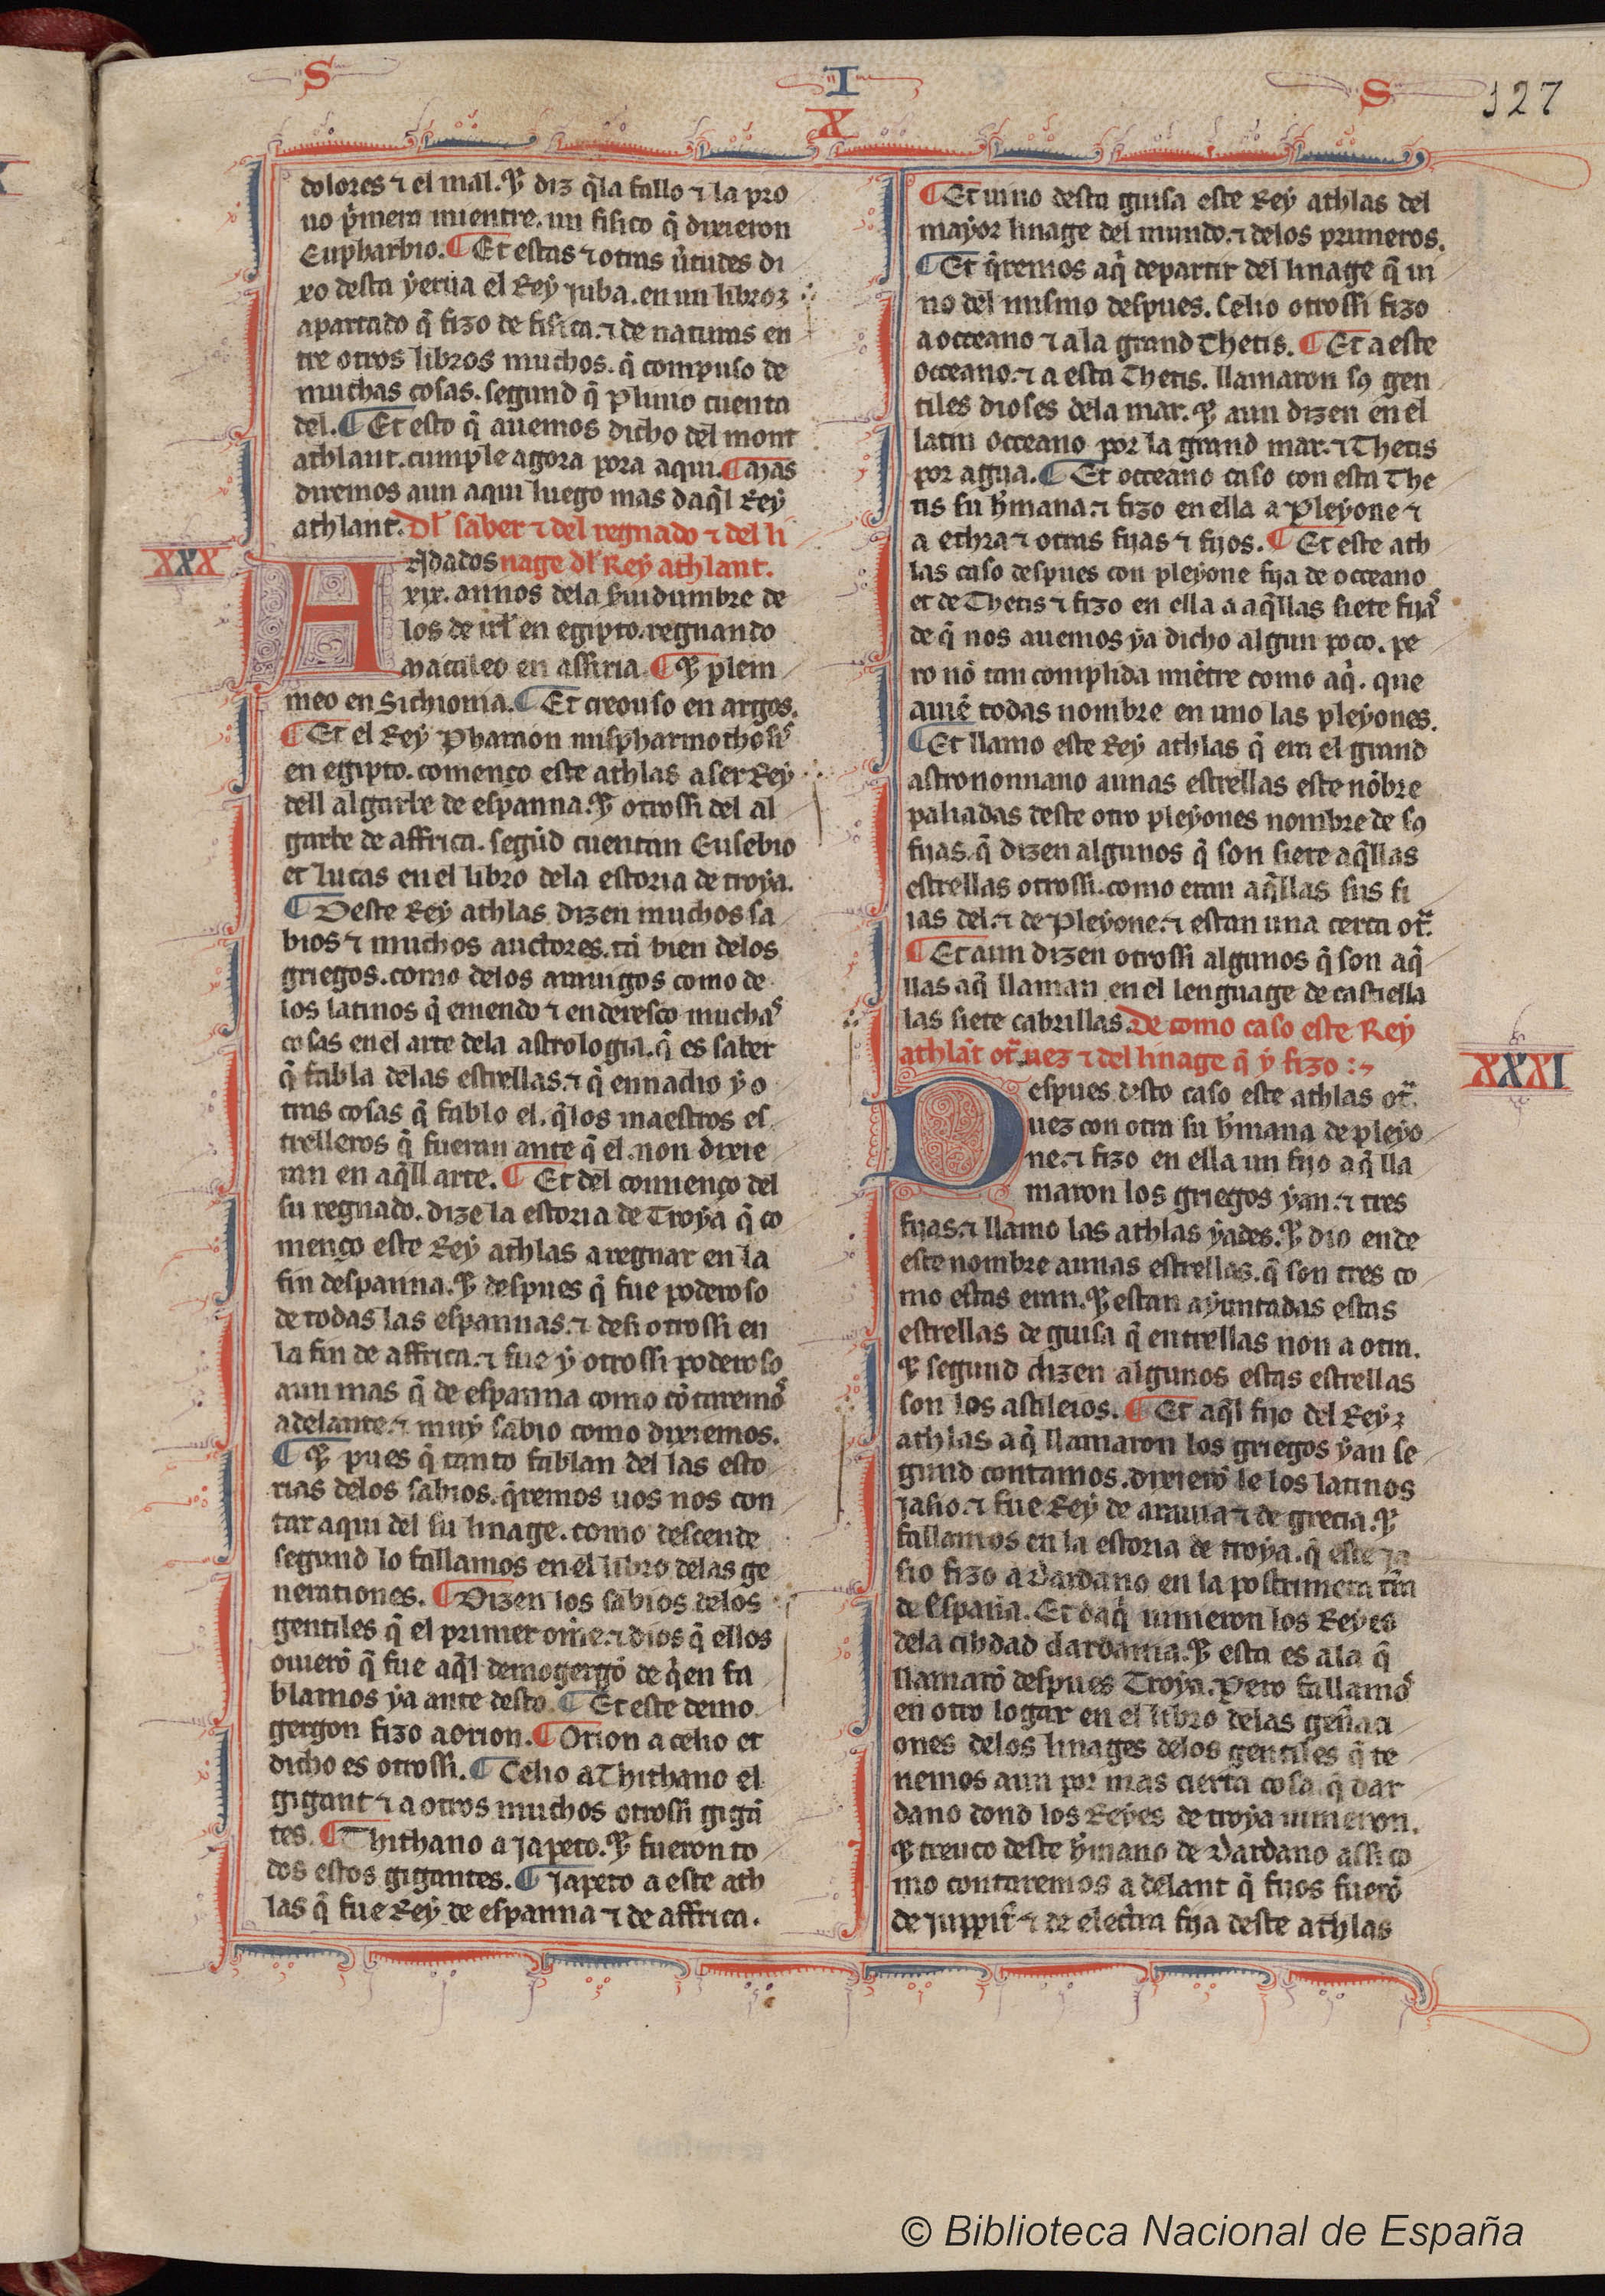 S I S 127
X
dolores ⁊ el mal. ⁊ diz q̃la fallo ⁊ la pro
uo p̃mera mientre. un fisico q̃ dixieron
Eupharbio. ¶ Et estas ⁊ otras ũtudes di
xo desta yerua el Rey juba. en un libro
apartado q̃ fizo de fisica. ⁊ de naturas en
tre otros libros muchos. q̃ compuso de
muchas cosas. segund q̃ plinio cuenta
del. ¶ Et esto q̃ auemos dicho del mont
athlant. cumple agora pora aqui. ¶ Mas
diremos aun aqui luego mas daq̃l Rey
athlant. Dl̃ saber ⁊ del regnado ⁊ del li
XXX
nage dl̃ Rey athlant.
Andados
xix. annos dela s̃uidumbre de
los de irl̃ en egipto. regnando
Macaleo en assiria. ¶ ⁊ plem
meo en Sichionia. ¶ Et creouso en argos.
¶ Et el Rey Pharaon mispharmothosis
en egipto. començo este athlas a ser Rey
dell algarbe de espanna. ⁊ otrossi del al
garbe de affrica. segũd cuentan Eusebio
et lucas en el libro dela estoria de troya.
¶ Deste Rey athlas dizen muchos sa
bios ⁊ muchos auctores. tã bien delos
griegos. como delos arauigos como de
los latinos q̃ emendo ⁊ enderesço muchas
cosas en el arte dela astrologia. q̃ es saber
q̃ fabla delas estrellas. ⁊ q̃ ennadio y o
tras cosas q̃ fablo el. q̃los maestros es
trelleros q̃ fueran ante q̃ el. non dixie
ran en aq̃ll arte. ¶ Et del comienço del
su regnado. dize la estoria de Troya q̃ co
menço este Rey athlas a regnar en la
fin despanna. ⁊ despues q̃ fue poderoso
de todas las espannas. ⁊ desi otrossi en
la fin de affrica. ⁊ fue y otrossi poderoso
aun mas q̃ de espanna como cõtaremos
adelante. ⁊ muy sabio como dixiemos.
¶ ⁊ pues q̃ tanto fablan del las esto
rias delos sabios. q̃remos uos nos con
tar aqui del su linage. como descende
segund lo fallamos en el libro delas ge
nerationes. ¶ Dizen los sabios delos
gentiles q̃ el primer om̃e. ⁊ dios q̃ ellos
ouierõ q̃ fue aq̃l demogergõ de q̃en fa
blamos ya ante desto. ¶ Et este demo
gergon fizo a orion. ¶ Orion a celio et
dicho es otrossi. ¶ Celio a Thithano el
gigant ⁊ a otros muchos otrossi gigã
tes. ¶ Thithano a japeto. ⁊ fueron to
dos estos gigantes. ¶ Japeto a este ath
las q̃ fue Rey de espanna ⁊ de affrica.
¶ Et uino desta guisa este Rey athlas del
mayor linage del mundo. ⁊ delos primeros.
¶ Et q̃remos aq̃ departir del linage q̃ ui
no del mismo despues. Celio otrossi fizo
a occeano ⁊ ala grand Thetis. ¶ Et a este
occeano. ⁊ a esta Thetis. llamaron sos gen
tiles dioses dela mar. ⁊ aun dizen en el
latin occeano por la grand mar. ⁊ Thetis
por agua. ¶ Et occeano caso con esta The
tis su h̃mana. ⁊ fizo en ella a Pleyone ⁊
a ethra ⁊ otras fijas ⁊ fijos. ¶ Et este ath
las caso despues con pleyone fija de occeano
et de Thetis ⁊ fizo en ella a aq̃llas siete fijas
de q̃ nos auemos ya dicho algun poco. pe
ro nõ tan complida miẽtre como aq̃. que
auiẽ todas nombre en uno las pleyones.
¶ Et llamo este Rey athlas q̃ era el grand
astronomiano a unas estrellas este nõbre
paliadas deste otro pleyones nombre de sos
fijas. q̃ dizen algunos q̃ son siete aq̃llas
estrellas otrossi. como eran aq̃llas sus fi
ias del. ⁊ de Pleyone. ⁊ estan una cerca ot̃.
¶ Et aun dizen otrossi algunos q̃ son aq̃
llas aq̃ llaman en el lenguage de castiella
las siete cabrillas. De como caso este Rey
athlãt ot̃ uez ⁊ del linage q̃ y fizo :⁊
XXXI
Despues desto caso este athlas ot̃
uez con otra su h̃mana de pleyo
ne. ⁊ fizo en ella un fijo aq̃ lla
maron los griegos yan. ⁊ tres
fijas. ⁊ llamo las athlas yades. ⁊ dio ende
este nombre a unas estrellas. q̃ son tres co
mo estas eran. ⁊ estan ayuntadas estas
estrellas de guisa q̃ entrellas non a otra.
⁊ segund dizen algunos estas estrellas
son los astileios. ¶ Et aq̃l fijo del Rey
athlas aq̃ llamaron los griegos yan se
gund contamos. dixierõ le los latinos
jasio. ⁊ fue Rey de arauia ⁊ de grecia. ⁊
fallamos en la estoria de troya. q̃ este ja
sio fizo a Dardano en la postrimera t̃ra
de España. Et daq̃ uinieron los Reyes
dela cibdad dardania. ⁊ esta es ala q̃
llamarõ despues Troya. Pero fallamos
en otro logar en el libro delas geñaci
ones delos linages delos gentiles q̃ te
nemos aun por mas cierta cosa q̃ dar
dano dond los Reyes de troya uinieron.
⁊ treuco deste h̃mano de Dardano assi co
mo contaremos adelant q̃ fijos fuerõ
de juppit̃ ⁊ de elect̃a fija deste athlas
© Biblioteca Nacional de España